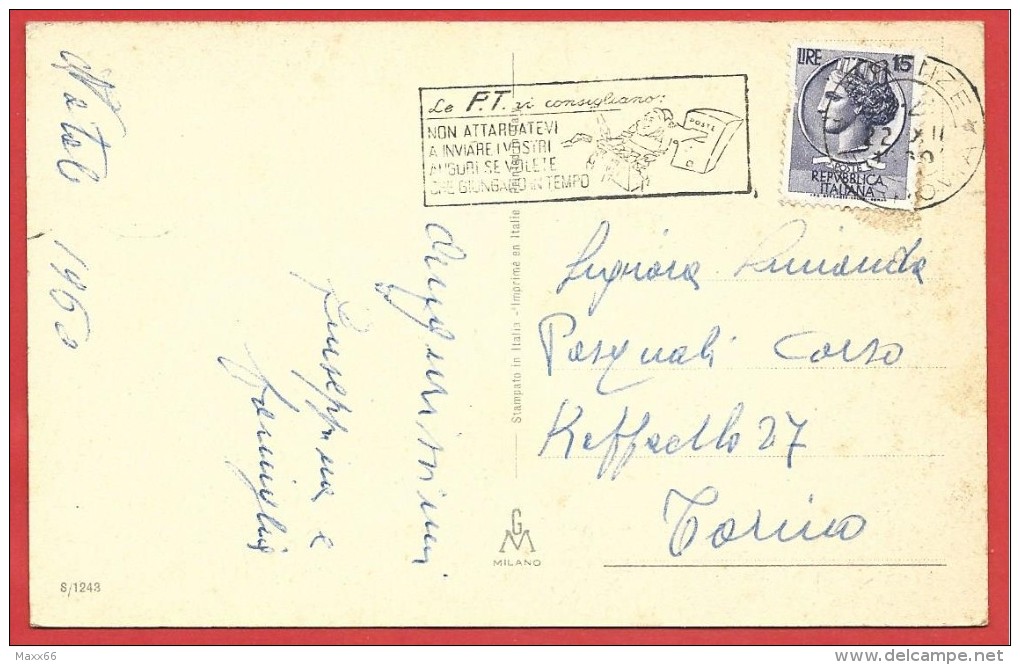 Natale 1960
Augurissimi
Giuseppina e
famiglia
Le P.T. vi consigliano:
NON ATTARDATEVI
A INVIARE I VOSTRI
AUGURI SE VOLETE
CHE GIUNGANO IN TEMPO
POSTE
LIRE 15
POSTE
REPVBBLICA
ITALIANA
Signora
Pasquali Corso
Raffaello 27
Torino
Stampato in Italia - Imprimé en Italie
GM
MILANO
8/1243
Maxx66
www.delcampe.net